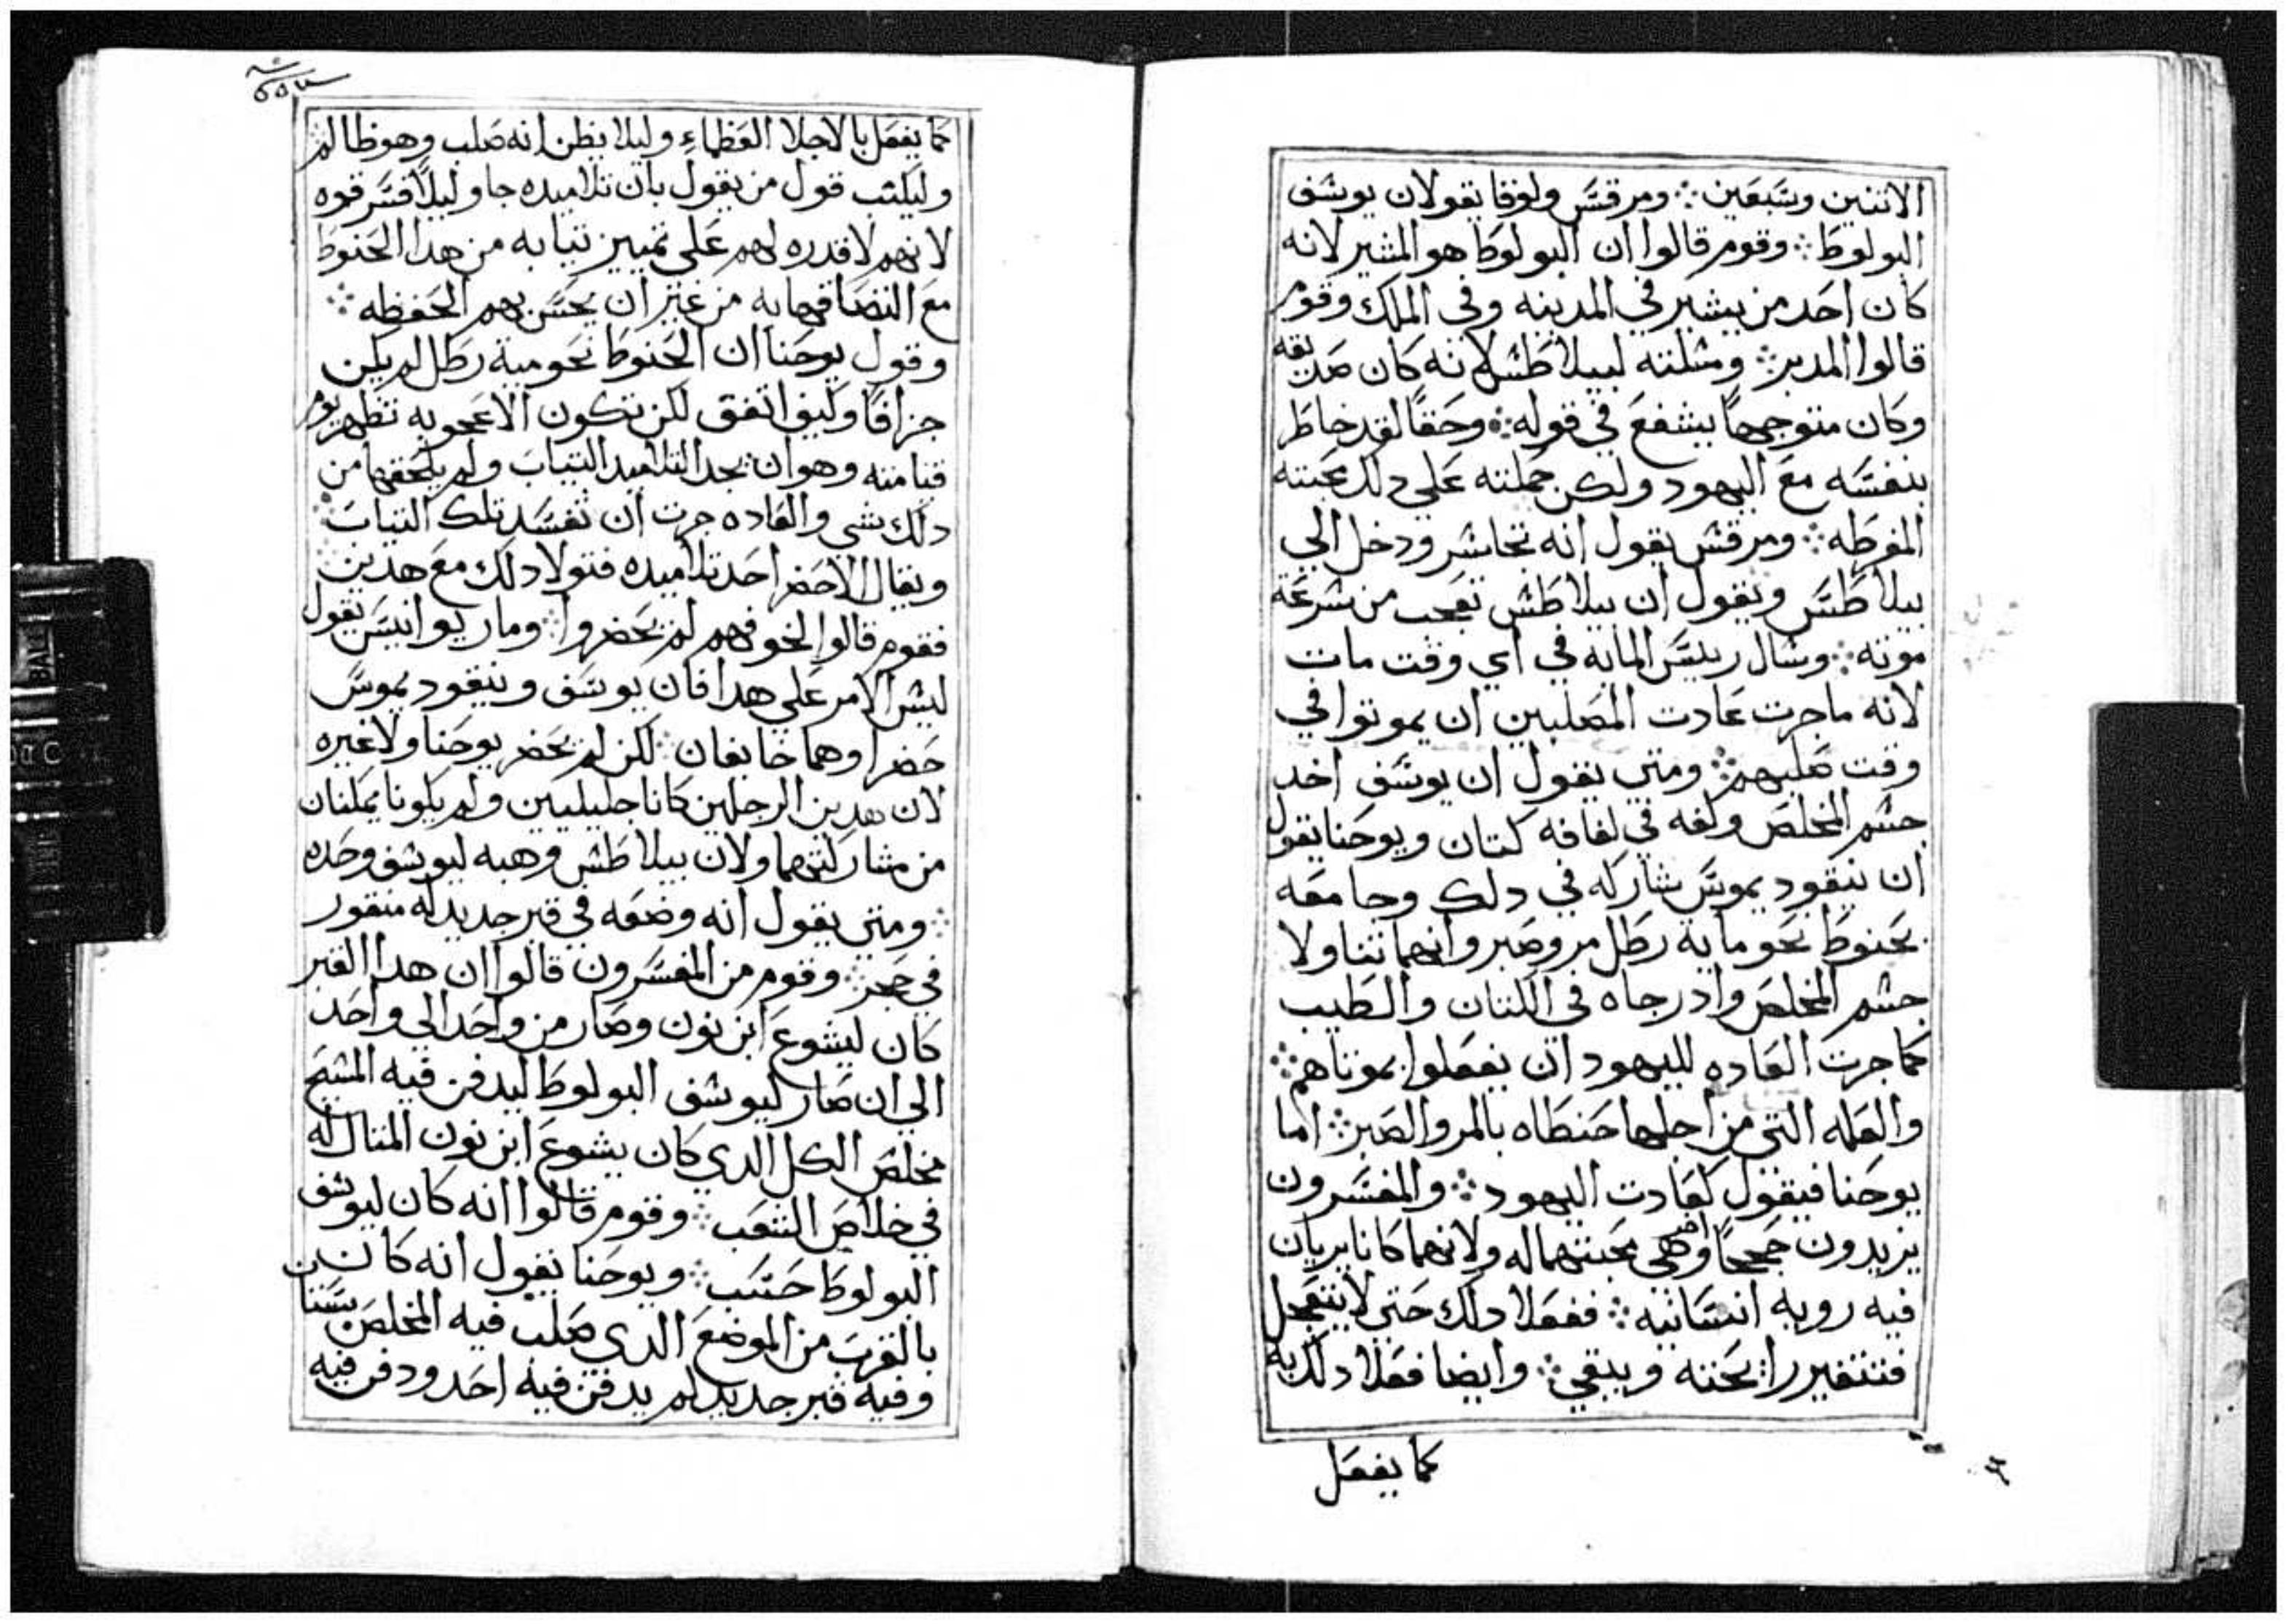 الاتنين وسبعين ⁘ ومرقس ولوقا يقولان يوسف
البولوط ⁘ وقوم قالوا ان البولوط هو المشير لانه
كان احد من يشير في المدينه وفي الملك وقوم
قالوا المدبر ⁘ ومسلته لبيلاطس لانه كان صديقه
وكان متوجها يشفع في قوله ⁘ وحقًا لقد خاطر
بنفسه مع اليهود ولكن حملته علي دلك محبته
المفرطه ⁘ ومرقس يقول انه تجاسر ودخل الي
بيلاطس ويقول ان بيلاطس تعجب من سرعة
موته ⁘ وسال رييس المايه في اي وقت مات
لانه ماجرت عادت المصلبين ان يموتوا في
وقت صلبهم ⁘ ومتي يقول ان يوسف اخد
جسم المخلص ولفه في لفافه كتان ويوحنا يقول
ان نيقود يموس شاركه في دلك وجا معه
بحنوط نحو مايه رطل مر وصبر وانهما تناولا
جسم المخلص وادرجاه في الكتان والطيب
كما جرت العاده لليهود ان يفعلوا بموتاهم ⁘
والعله التي من اجلها حنطاه بالمر والصبر ⁘ اما
يوحنا فيقول كعادت اليهود ⁘ والمفسرون
يزيدون حججًا اخر وهي محبتهما له ولانهما كانا يريان
فيه رويه انسانيه ⁘ ففعلا دلك حتي لا يتعجل
فتتغير رايحته ويبقي ⁘ وايضا فعلا دلك به
كما يفعل
كما يفعل بالاجلا العظماء وليلا يظن انه صلب وهو ظالم
وليكتب قول من يقول بان تلاميده جاو ليلًا فسرقوه
لانهم لا قدره لهم علي تمييز تيابه من هدا الحنوط
مع التصاقهما به من غير ان يحس بهم الحفظه ⁘
وقول يوحنا ان الحنوط نحو مية رطل لم يكن
جزافًا وكيف اتفق لكن تكون الاعجوبه تظهر يوم
قيامته وهو ان يجد التلاميد التياب ولم يلحقها من
دلك شي والعاده جرت ان تفسد تلك التياب ⁘
ويقال لاحضر احد تلاميده فتولا دلك مع هدين
فقوم قالوا لخوفهم لم يحضروا ⁘ ومار يوانيس يقول
ليس الامر علي هدا فان يوسف ونيقود يموس
حضرا وهما خايفان ⁘ لكن لم يحضر يوحنا ولا غيره
لان هدين الرجلين كانا جليليين ولم يكونا يمكنان
من مشاركتهما ولان بيلاطس وهبه ليوسف وحده
⁘ ومتي يقول انه وضعه في قبر جديد له منقور
في حجر ⁘ وقوم من المفسرون قالوا ان هدا القبر
كان ليشوع ابن نون وصار من واحد الي واحد
الي ان صار ليوسف البولوط ليدفن فيه المسيح
مخلص الكل الدي كان يشوع ابن نون المتال له
في خلاص الشعب ⁘ وقوم قالوا انه كان ليوسف
البولوط حسب ⁘ ويوحنا يقول انه كان
بالقرب من الموضع الدي صلب فيه المخلص بستنا
وفيه قبر جديد لم يدفن فيه احد ودفن فيه